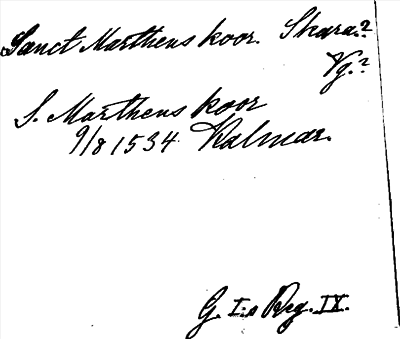 Sanct Marthens koor. Skara?
Vg.?
S. Marthens koor
9/8 1534. Kalmar.
G. I:s Reg. IX.